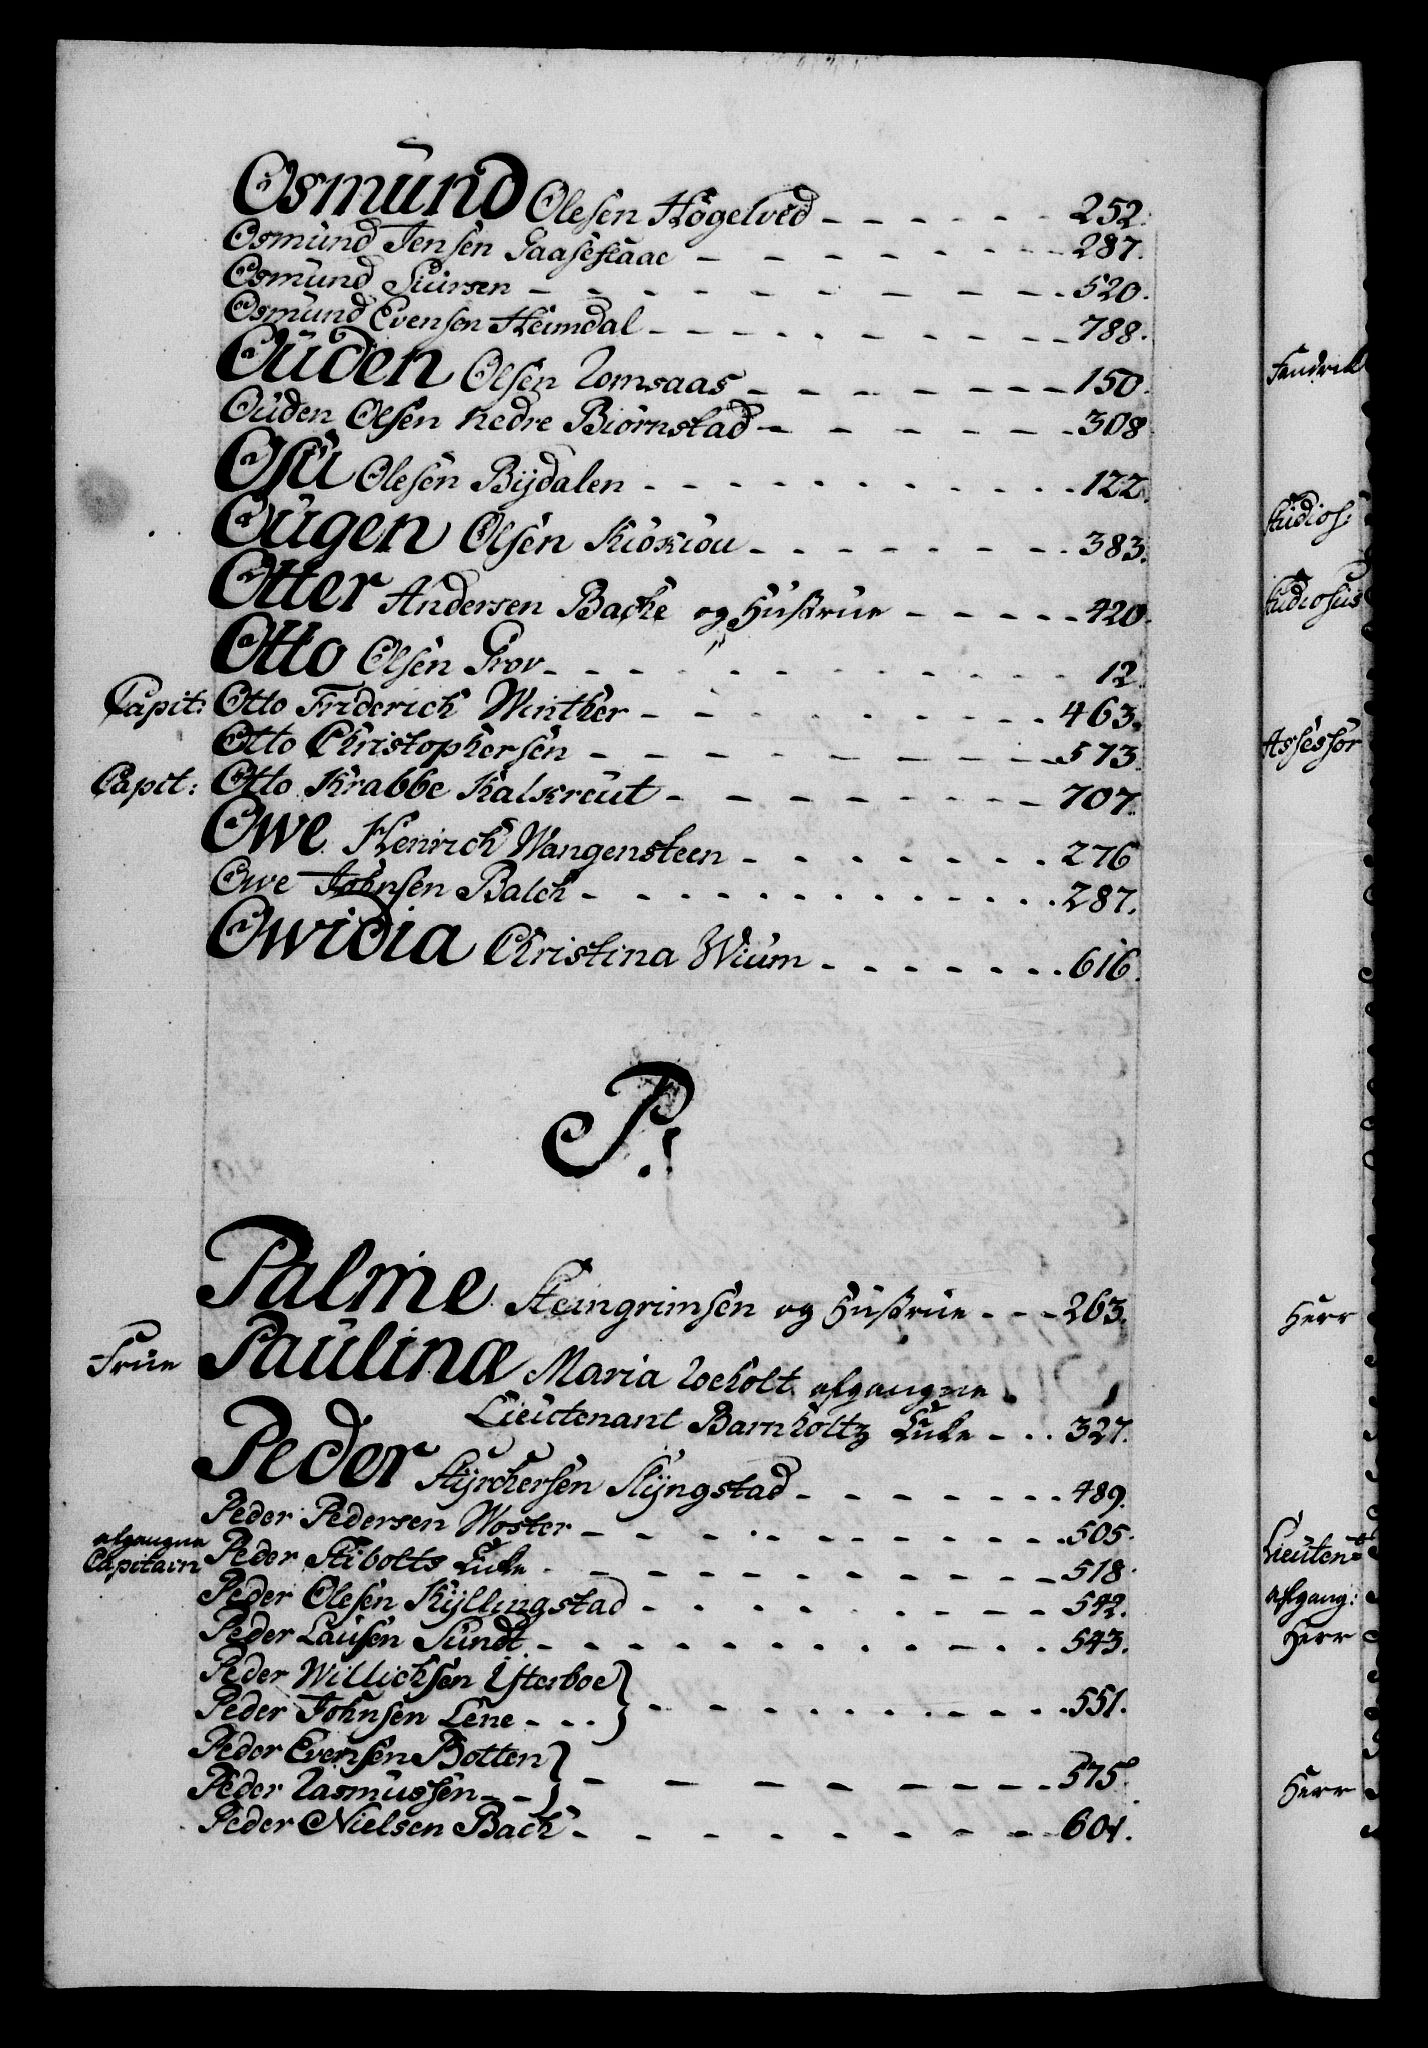 Osmund Olesen Högelved - - - - - - 252.
Osmund Jensen Gaaseflaae - - - - - - - 287.
Osmund Siursen - - - - - - - - - - 520.
Osmund Evensen Heimdal - - - - - - - - 788.
Ouden Olsen Romsaas - - - - - - - - 150.
Ouden Olsen nedre Biörnstad - - - - - - 308
Osu Olesen Bÿdalen - - - - - - - - - 122.
Ougen Olsen Kioxiou - - - - - - - - 383.
Otter Andersen Backe og Hustrue - - - - - 420.
Otto Olsen Grov - - - - - - - - - - 12.
Capit: Otto Friderich Winther - - - - - - - - 463.
Otto Christophersen - - - - - - - - - 573.
Capit: Otto Krabbe Kalkreut - - - - - - - - 707.
Owe Henrich Wangensteen - - - - - - - 276
Owe Johnsen Balch - - - - - - - - - - 287.
Owidia Christina Wium - - - - - - - 616.
P.
Palme Steingrimsen og Hustrue - - - 263.
Frue Paulina Maria Rocholt afgangne
Lieutenant Barnholtz Enke - . . 327.
Peder Styrchersen Slÿngstad - - - - - - - 489.
Peder Pedersen Woster - - - - - - - - - 505.
afgangne
Capitain Peder Stibolts Enke - - - - - - - - - 518.
Peder Olesen Kÿllingstad - - - - - - - - 542.
Peder Lausen Sundt - - - - - - - - - - 543.
Peder Willichsen Ysterboe }
Peder Johnsen Lene - . . } - - - - - - - - - 551.
Peder Evensen Botten }
Peder Rasmussen - - } - - - - - - - - - 575.
Peder Nielsen Bach - - - - - - - - - 601.
Fendrik
Studios:
Studiosus
Assessor
Herr
Lieuten:t
afgang:
Herr
Herr